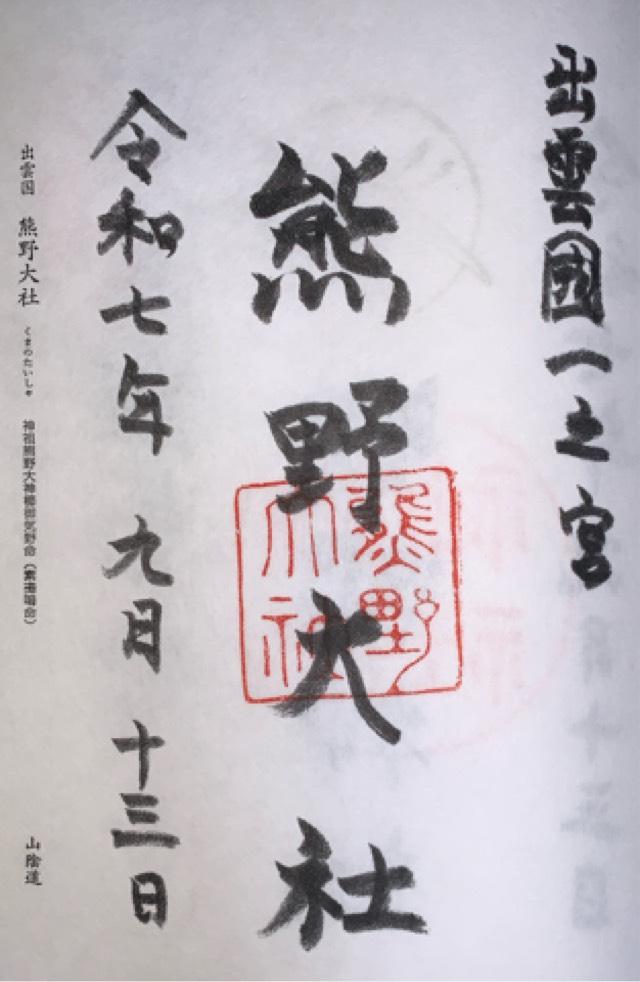 出雲國一之宮
熊野大社
熊野
大社
令和七年 九月 十三日
出雲国 熊野大社 くまのたいしゃ 神祖熊野大神櫛御気野命(素戔嗚命) 山陰道